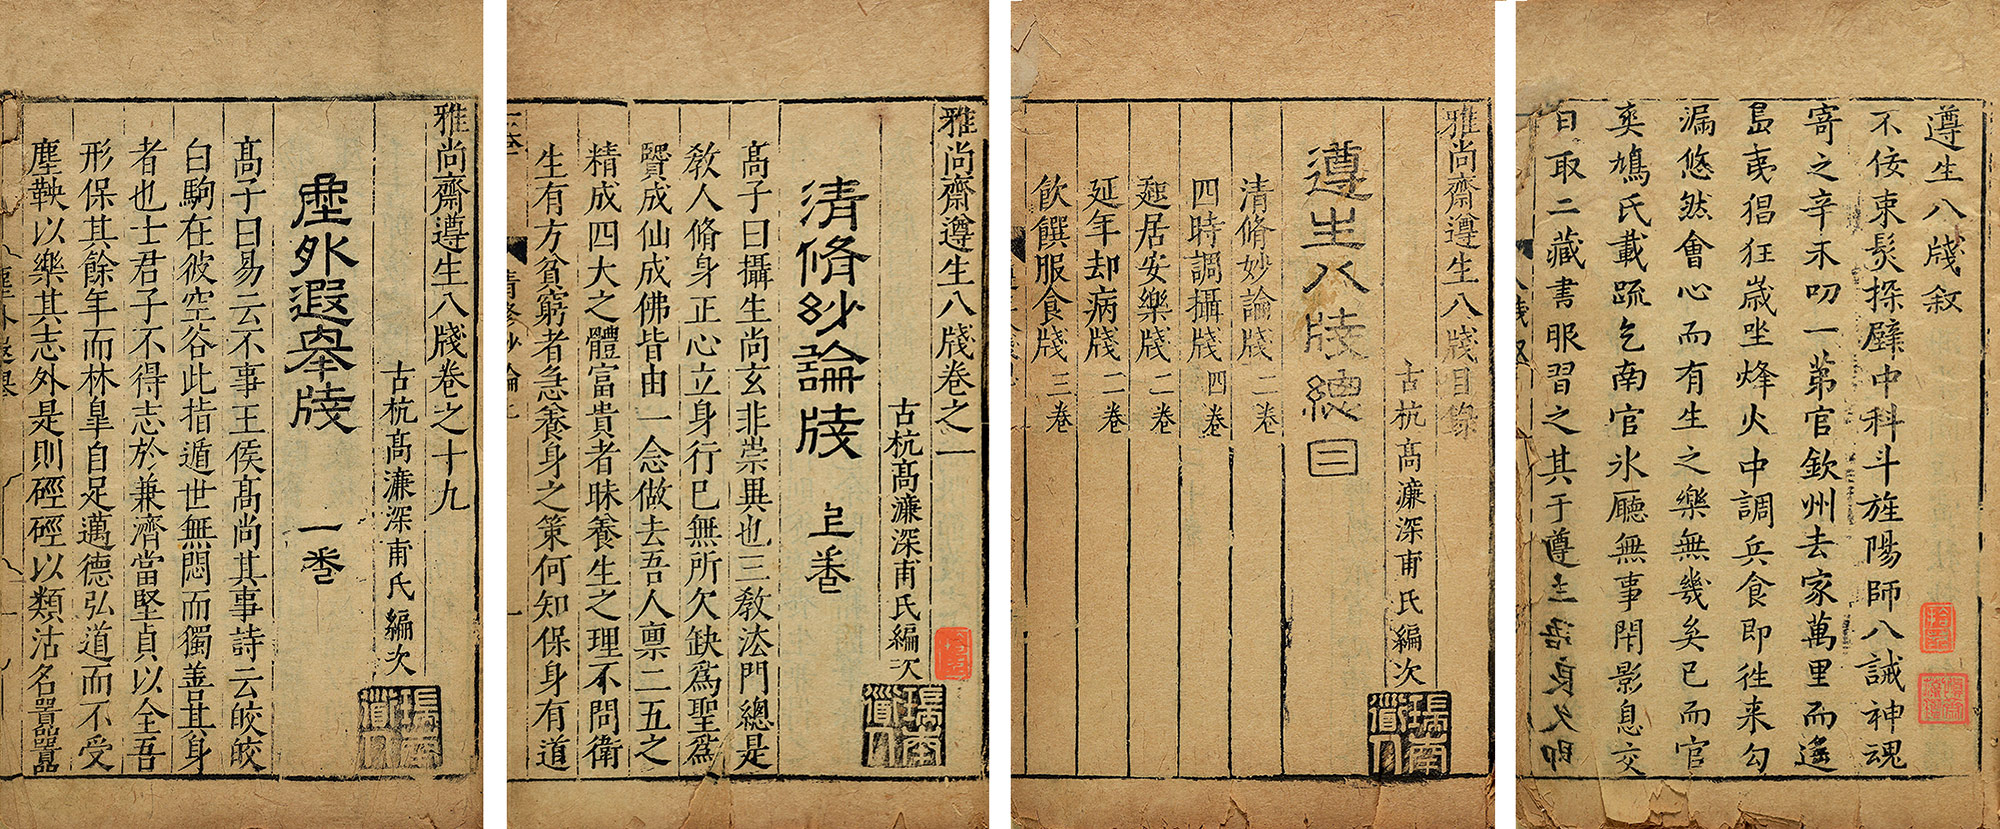 遵生八牋敘
不佞束髮探壁中科斗旌陽師八誡神魂
寄之辛未叨一第官欽州去家萬里而遙
島夷猖狂歲坐烽火中調兵食即徃来勾
漏悠然會心而有生之樂無幾矣已而官
爽鳩氏載疏乞南官氷廳無事閉影息交
日取二藏書服習之其于遵生語良久即
雅尚齋遵生八牋目錄
古杭高濂深甫氏編次
瑞南道人
遵生八牋總目
清脩妙論牋 二卷
四時調攝牋 四卷
起居安樂牋 二卷
延年却病牋 二卷
飲饌服食牋 三卷
雅尚齋遵生八牋卷之一
古杭高濂深甫氏編次
瑞南道人
清脩妙論牋 上卷
高子曰攝生尚玄非崇異也三教法門總是
教人脩身正心立身行巳無所欠缺爲聖爲
賢成仙成佛皆由一念做去吾人禀二五之
精成四大之體富貴者昧養生之理不問衛
生有方貧窮者急養身之策何知保身有道
雅尚齋遵生八牋卷之十九
古杭高濂深甫氏編次
瑞南道人
塵外遐舉牋 一卷
高子曰易云不事王侯高尚其事詩云皎皎
白駒在彼空谷此指遁世無悶而獨善其身
者也士君子不得志於兼濟當堅貞以全吾
形保其餘年而林皐自足邁德弘道而不受
塵鞅以樂其志外是則硜硜以類沽名囂囂